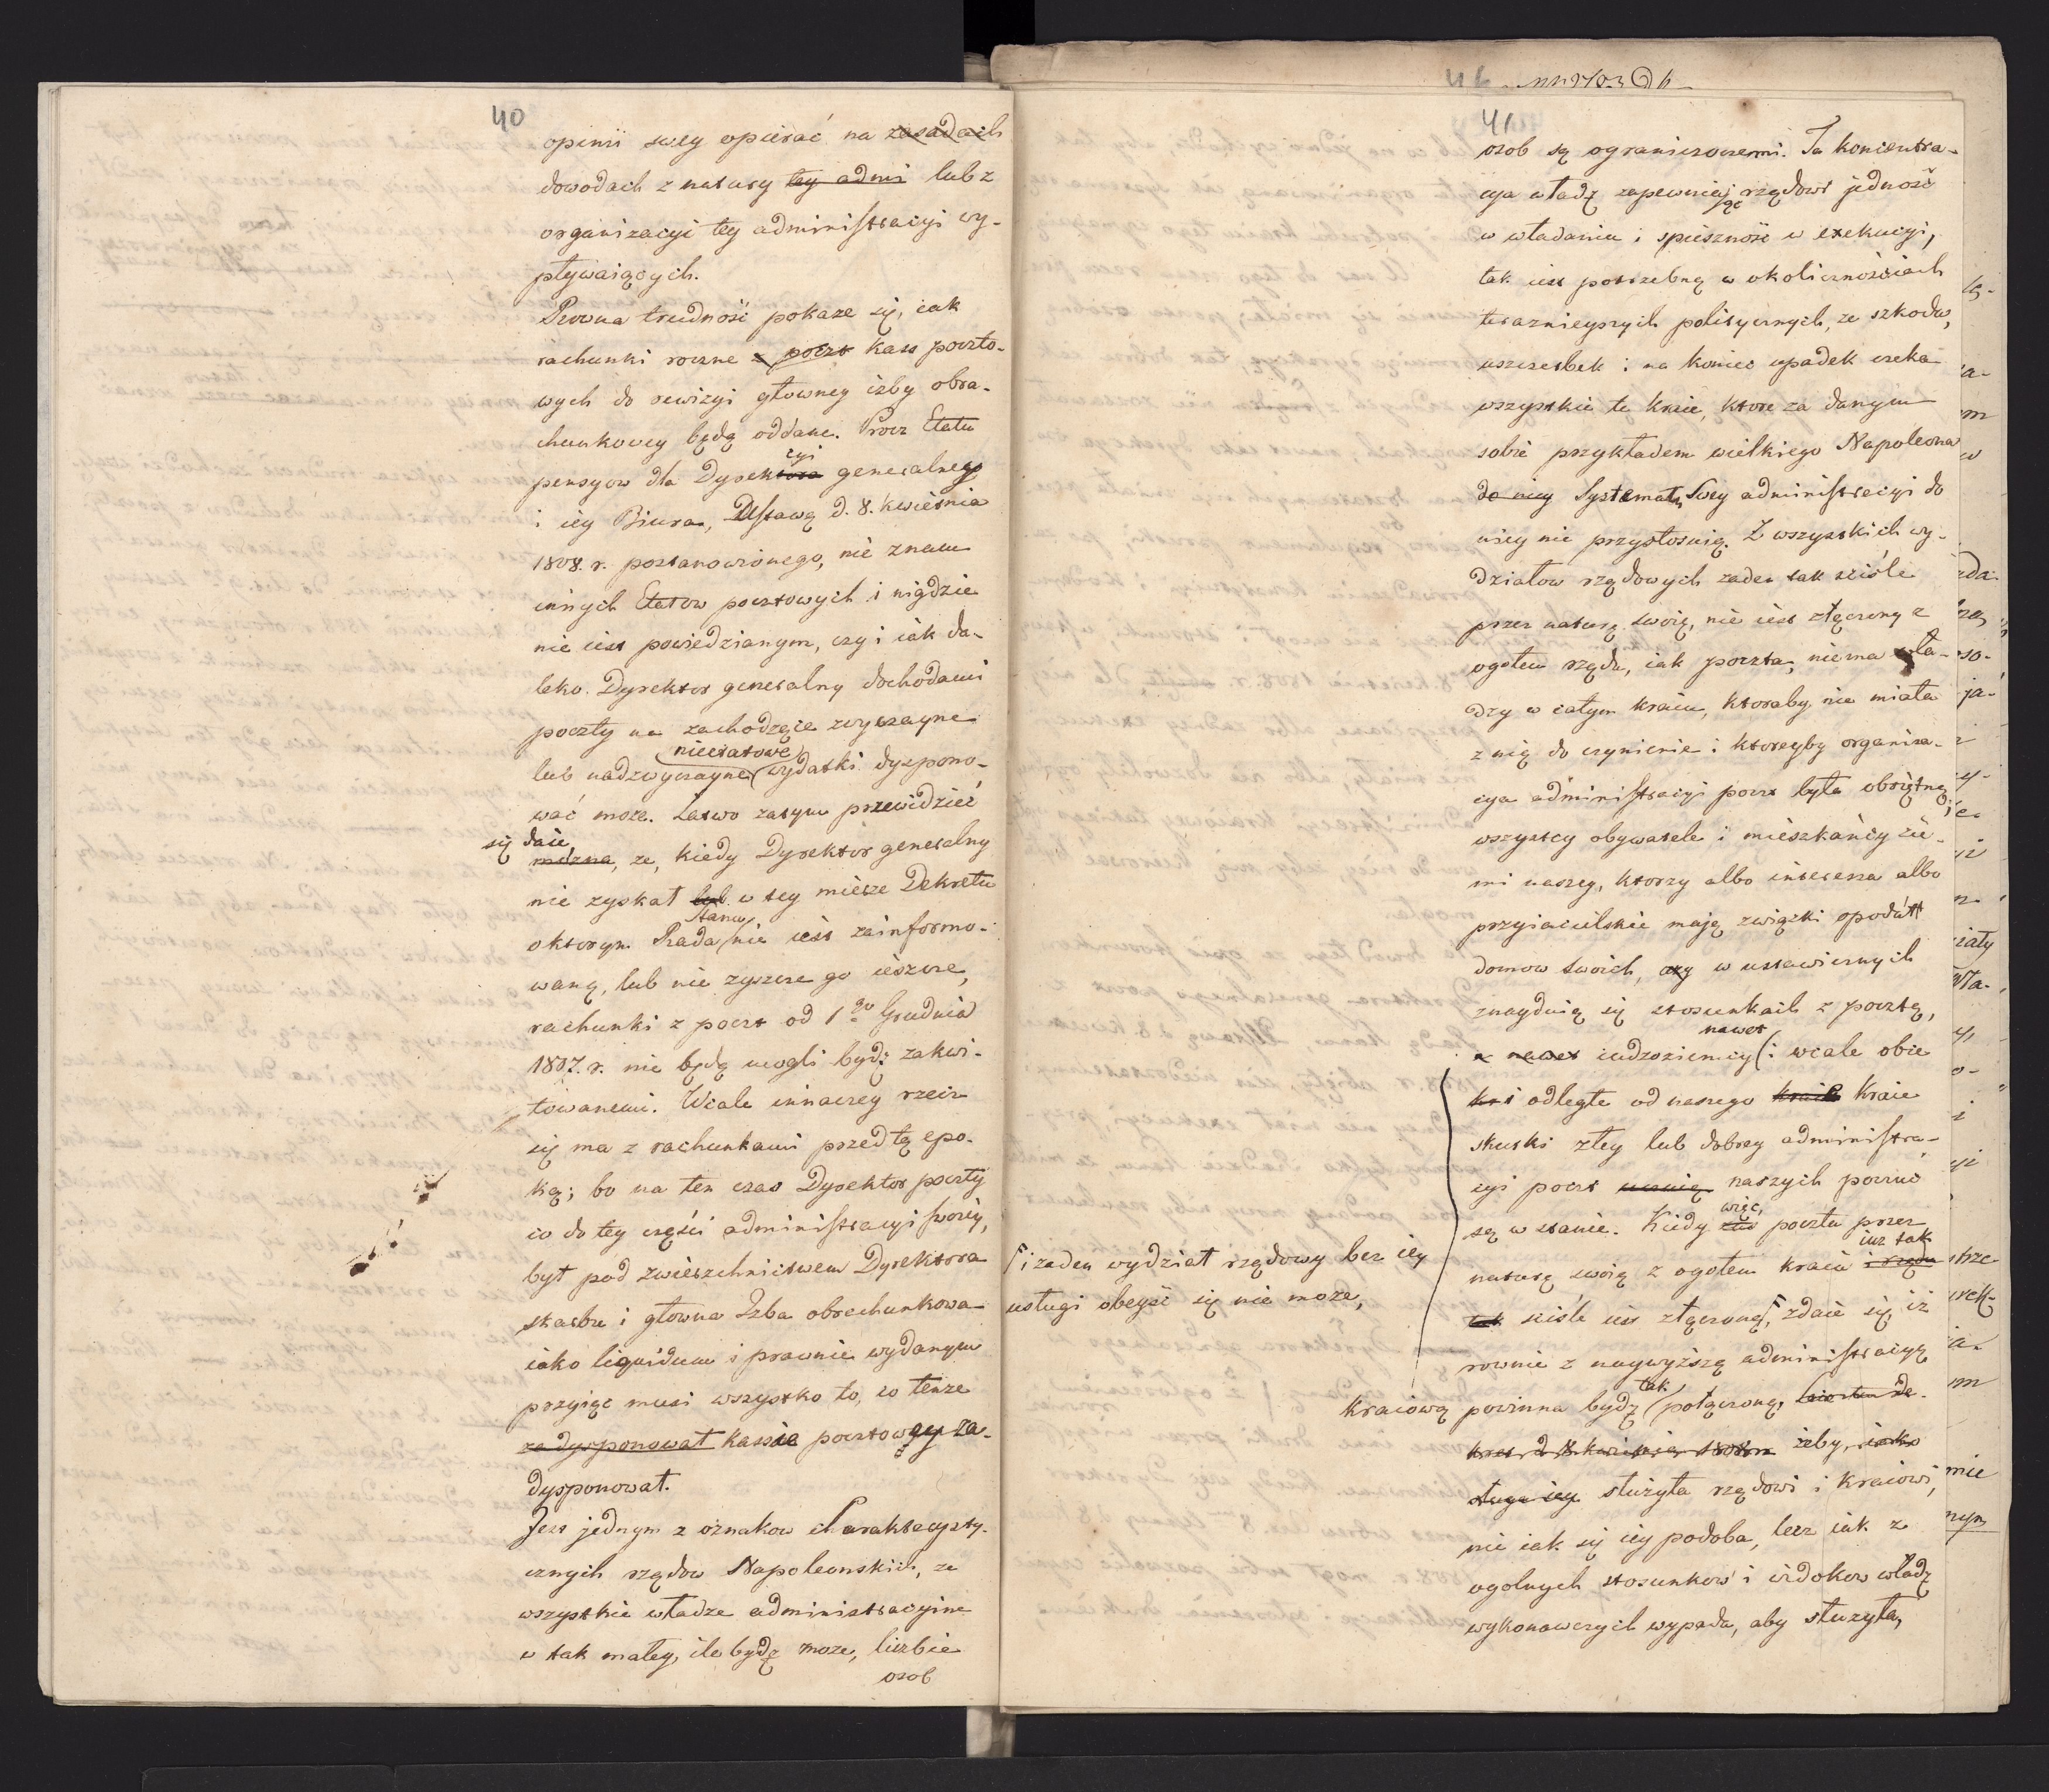 40
opinii swey opierać na zasadach
dowodach z natury tey admi lub z
organizacyi tey administracyi wy-
pływaiących.
Rowna trudność pokaże się, iak
rachunki roczne z poczt kass poczto-
wych do rewizyi głowney izby obra-
chunkowey będą oddane. Procz Etatu
cyi
pensyow dla Dyrektora generalney
i iey Biura, Ustawą d. 8. kwietnia
1808. r. postanowionego, nie znam
innych Etatow pocztowych i nigdzie
nie iest powiedzianym, czy i iak da-
leko Dyrektor generalny dochodami
poczty na zachodzące zwyczayne
nieetatowe
lub nadzwyczayne wydatki dyspono-
wać może. Łatwo zatym przewidzieć
się daie,
można, że, kiedy Dyrektor generalny
nie zyskał lub w tey mierze Dekretu
Stanu
o ktorym Rada nie iest zainformo-
waną, lub nie zyszcze go ieszcze,
rachunki z poczt od 1go Grudnia
1807. r. nie będą mogli bydź zakwi-
towanemi. Wcale innaczey rzecz
się ma z rachunkami przed tą epo-
ką; bo na ten czas Dyrektor poczty
co do tey części administracyi swoiey,
był pod zwierzchnictwem Dyrektora
skarbu i głowna Izba obrachunkowa
iako liquidum i prawnie wydanym
przyiąć musi wszystko to, co tenże
zadysponował kassie pocztowey za-
dysponował.
Jest jednym z oznakow charakterysty-
cznych rządow Napoleonskich, że
wszystkie władze administracyine
w tak małey, ile bydź może, liczbie
osob
41
osob są ograniczonemi. Ta koncentra-
cya władz zapewniaj rządowi jedność
ąc
w władaniu i spieszność w exekucyi,
tak iest potrzebną w okolicznościach
teraznieyszych politycznych, że szkoda,
uszczerbek i na koniec upadek czeka
wszystkie te kraie, ktore za danym
sobie przykładem wielkiego Napoleona
do niey Systematu swey administracyi do
niey nie przystosuią. Z wszystkich wy-
działow rządowych żaden tak sciśle
przez naturę swoię, nie iest złączony z
ogołem rządu, iak poczta; niema wła-
dzy w całym kraiu, ktoraby nie miała
z nią do czynienia i ktoreyby organiza-
cya administracyi poczt była obojętną;
wszyscy obywatele i mieszkańcy zie-
mi naszey, ktorzy albo interessa albo
przyiacielskie mają związki opodál
domow swoich, czy w ustawicznych
znayduią się stosunkach z pocztą,
nawet
a nawet cudzoziemcy i wcale obce
kra i odległe od naszego kraiu kraie
skutki złey lub dobrey administra-
cyi poczt naszych poznać
są w stanie. Kiedy
więc,
zaś poczta przez
iuż tak
naturę swoią z ogołem kraiu i rządu
tak sciśle iest złączoną, zdaie się, iż
rownie z naywyższą administracyą
tak
kraiową powinna bydź połączoną,
żeby, iako
sługa iey służyła rządowi i kraiowi,
nie iak się iey podoba, lecz iak z
ogolnych stosunkow i widokow władz
wykonawczych wypada, aby służyła,
i żaden wydział rządowy bez iey
usługi obeyść się nie może,